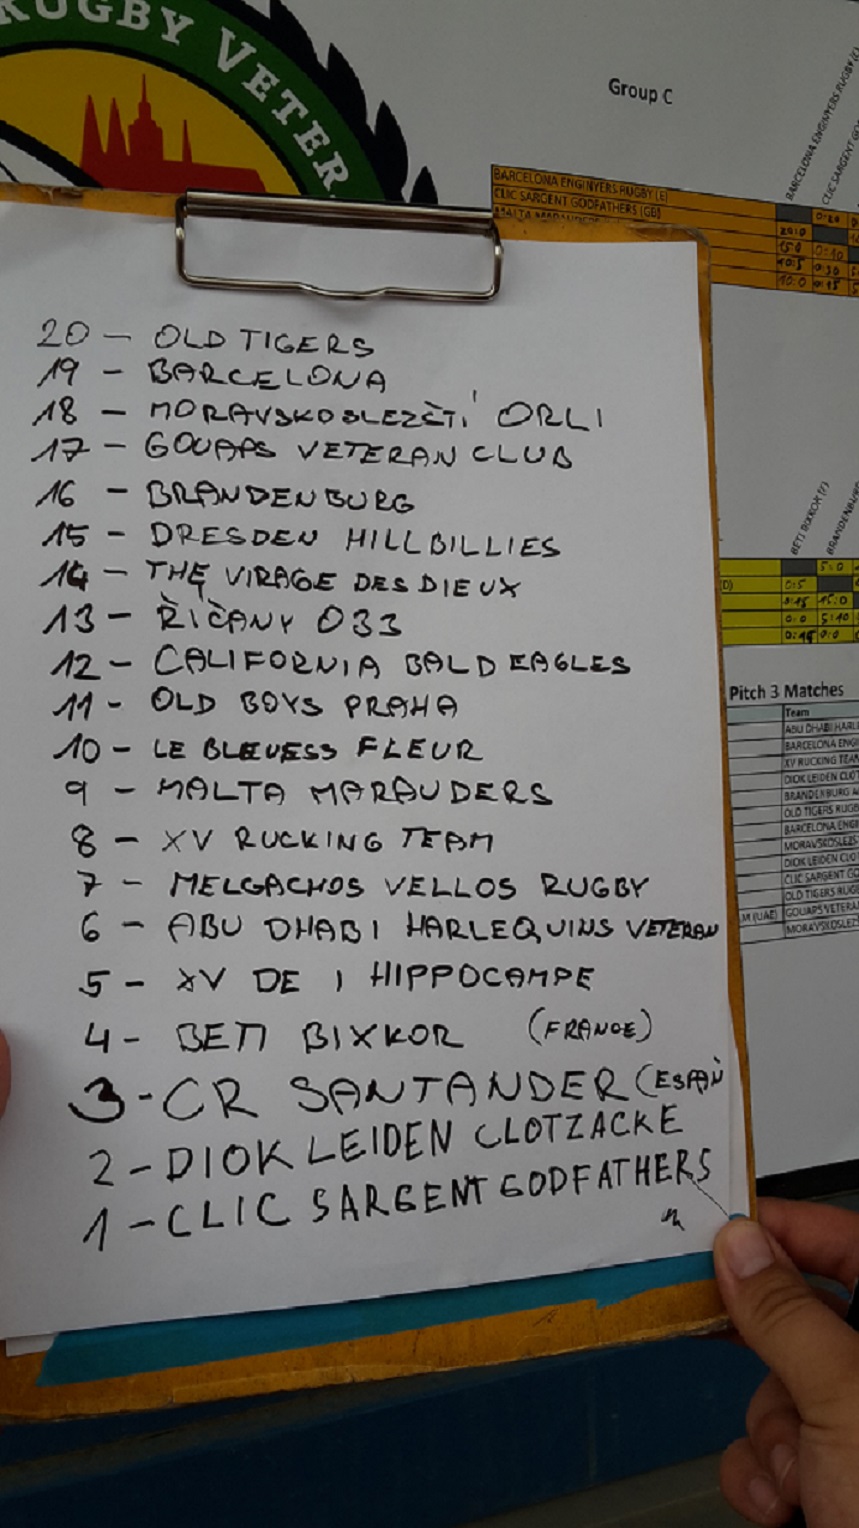 RUGBY VETER
Group C
BARCELONA ENGINYERS RUGBY (E)
CLIC SARGENT GODFATHERS (GB)
BARCELONA ENGINYERS RUGBY (E)
CLIC SARGENT
20:0
15:0 0:10
10:5 0:30
10:0 0:15
20 – OLD TIGERS
19 – BARCELONA
18 – MORAVSKOSLEZŠTÍ ORLI
17 – GOUAPS VETERAN CLUB
16 – BRANDENBURG
15 – DRESDEN HILLBILLIES
14 – THE VIRAGE DES DIEUX
13 – ŘÍČANY 033
12 – CALIFORNIA BALD EAGLES
11 – OLD BOYS PRAHA
10 – LE BLEUESS FLEUR
9 – MALTA MARAUDERS
8 – XV RUCKING TEAM
7 – MELGACHOS VELLOS RUGBY
6 – ABU DHABI HARLEQUINS VETERAN
5 – XV DE I HIPPOCAMPE
4 – BETI BIXKOR (FRANCE)
3 - CR SANTANDER (ESPAÑ
2 – DIOK LEIDEN CLOTZACKE
1 – CLIC SARGENT GODFATHERS
BETI BIXKOR (F)
BRANDENBURG
5:0
0:5
15:0
0:0 5:10
0:0
Pitch 3 Matches
Team
ABU DHABI HARL
BARCELONA ENG
XV RUCKING TEA
DIOK LEIDEN CLOT
BRANDENBURG A
OLD TIGERS RUG
BARCELONA ENG
MORAVSKOSLEZS
DIOK LEIDEN CLO
CLIC SARGENT GO
OLD TIGERS RUG
M (UAE) GOUAPS VETERA
MORAVSKOSLEZ